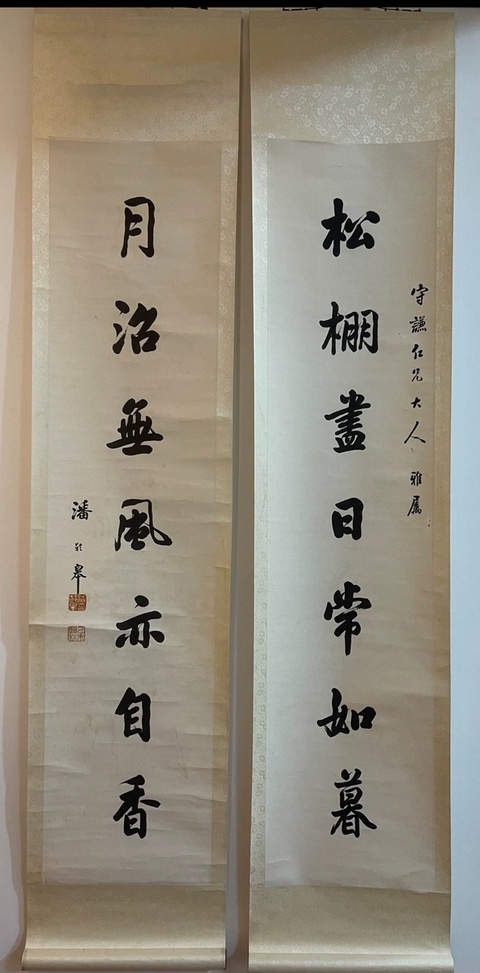 守謙仁兄大人 雅屬
松棚盡日常如暮
月沼無風亦自香
潘齡皋